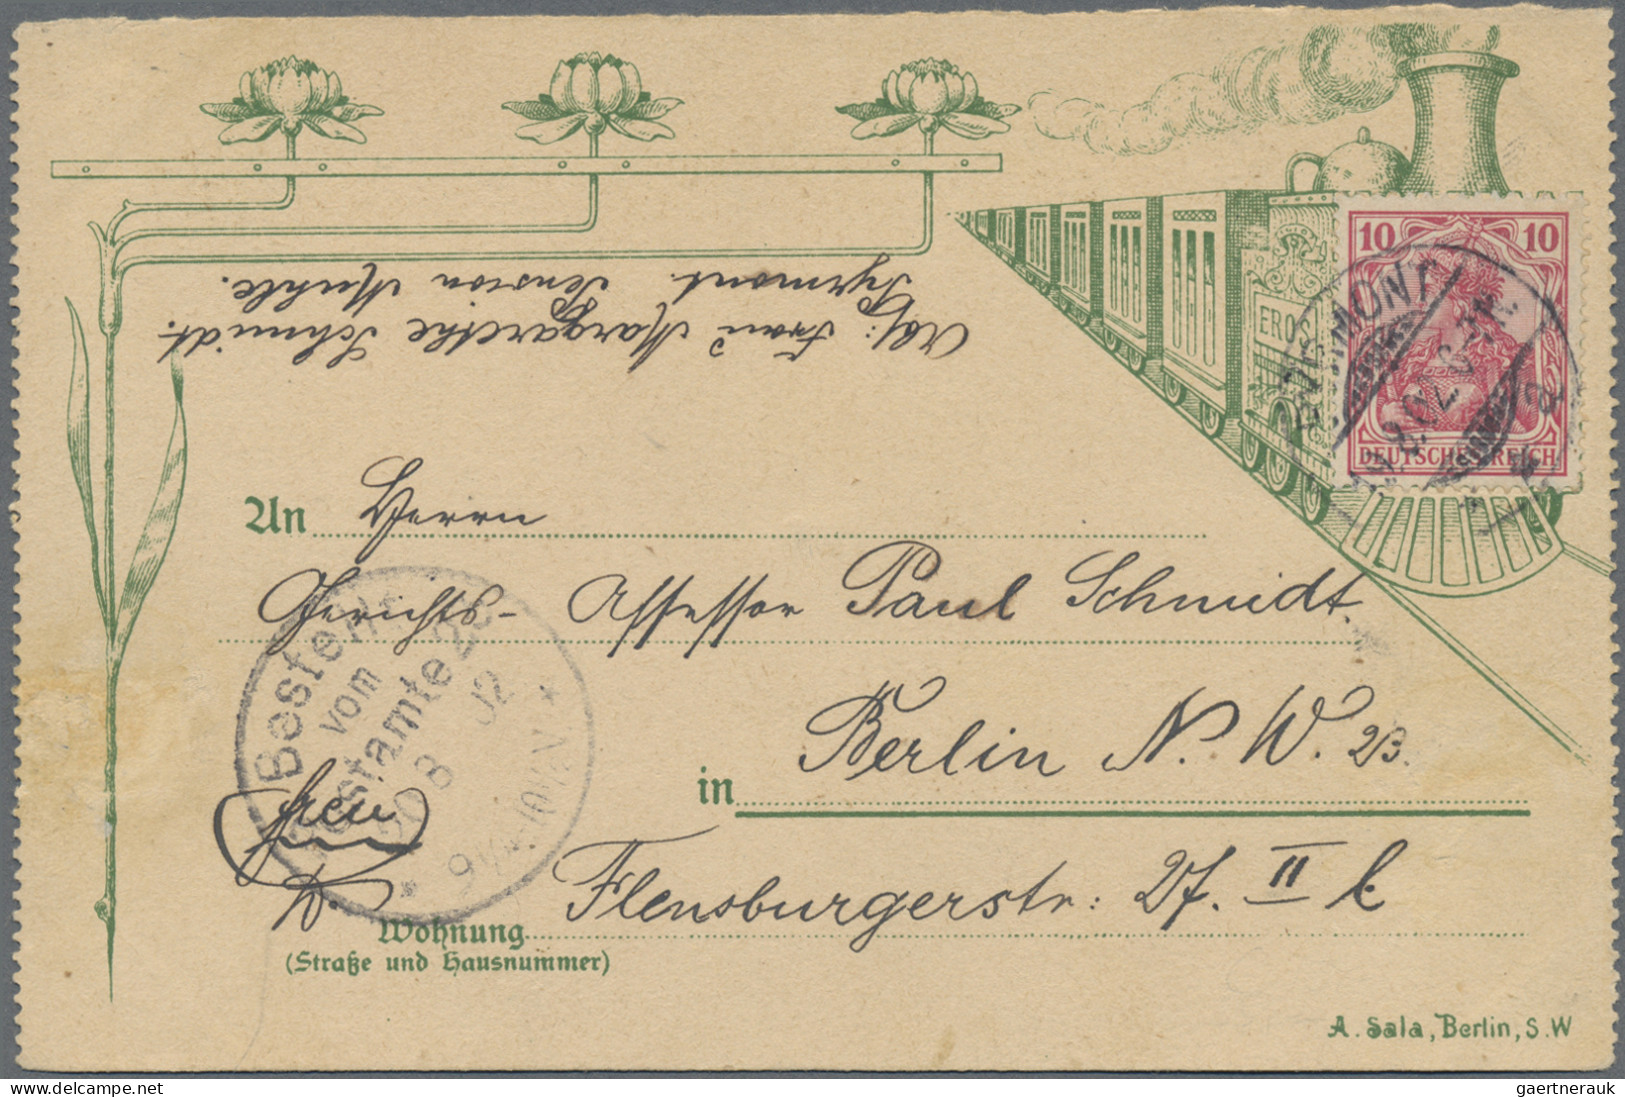 Abs: Frau Margarethe Schmidt.
Pyrmont. Pension Mühle.
EROS
10 10
DEUTSCHES REICH
An Herrn
Gerichts- Assessor Paul Schmidt.
in Berlin N. W. 23.
Flensburgerstr: 27. II l.
Wohnung
(Straße und Hausnummer)
frei
Bestellt
vom
Postamte 23
20 8 02
A. Sala, Berlin, S.W
gaertnerauk | delcampe.net